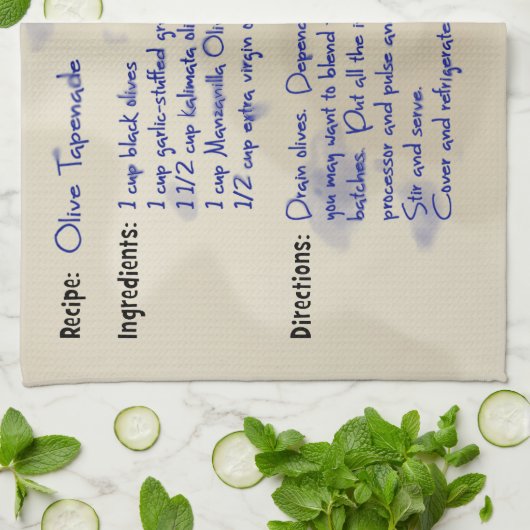 Recipe: Olive Tapenade
Ingredients: 1 cup black olives
1 cup garlic-stuffed gr
1 1/2 cup Kalimata oli
1 cup Manzanilla Oli
1/2 cup extra virgin o
Directions: Drain olives. Depend
you may want to blend
batches. Put all the i
processor and pulse an
Stir and serve.
Cover and refrigerate